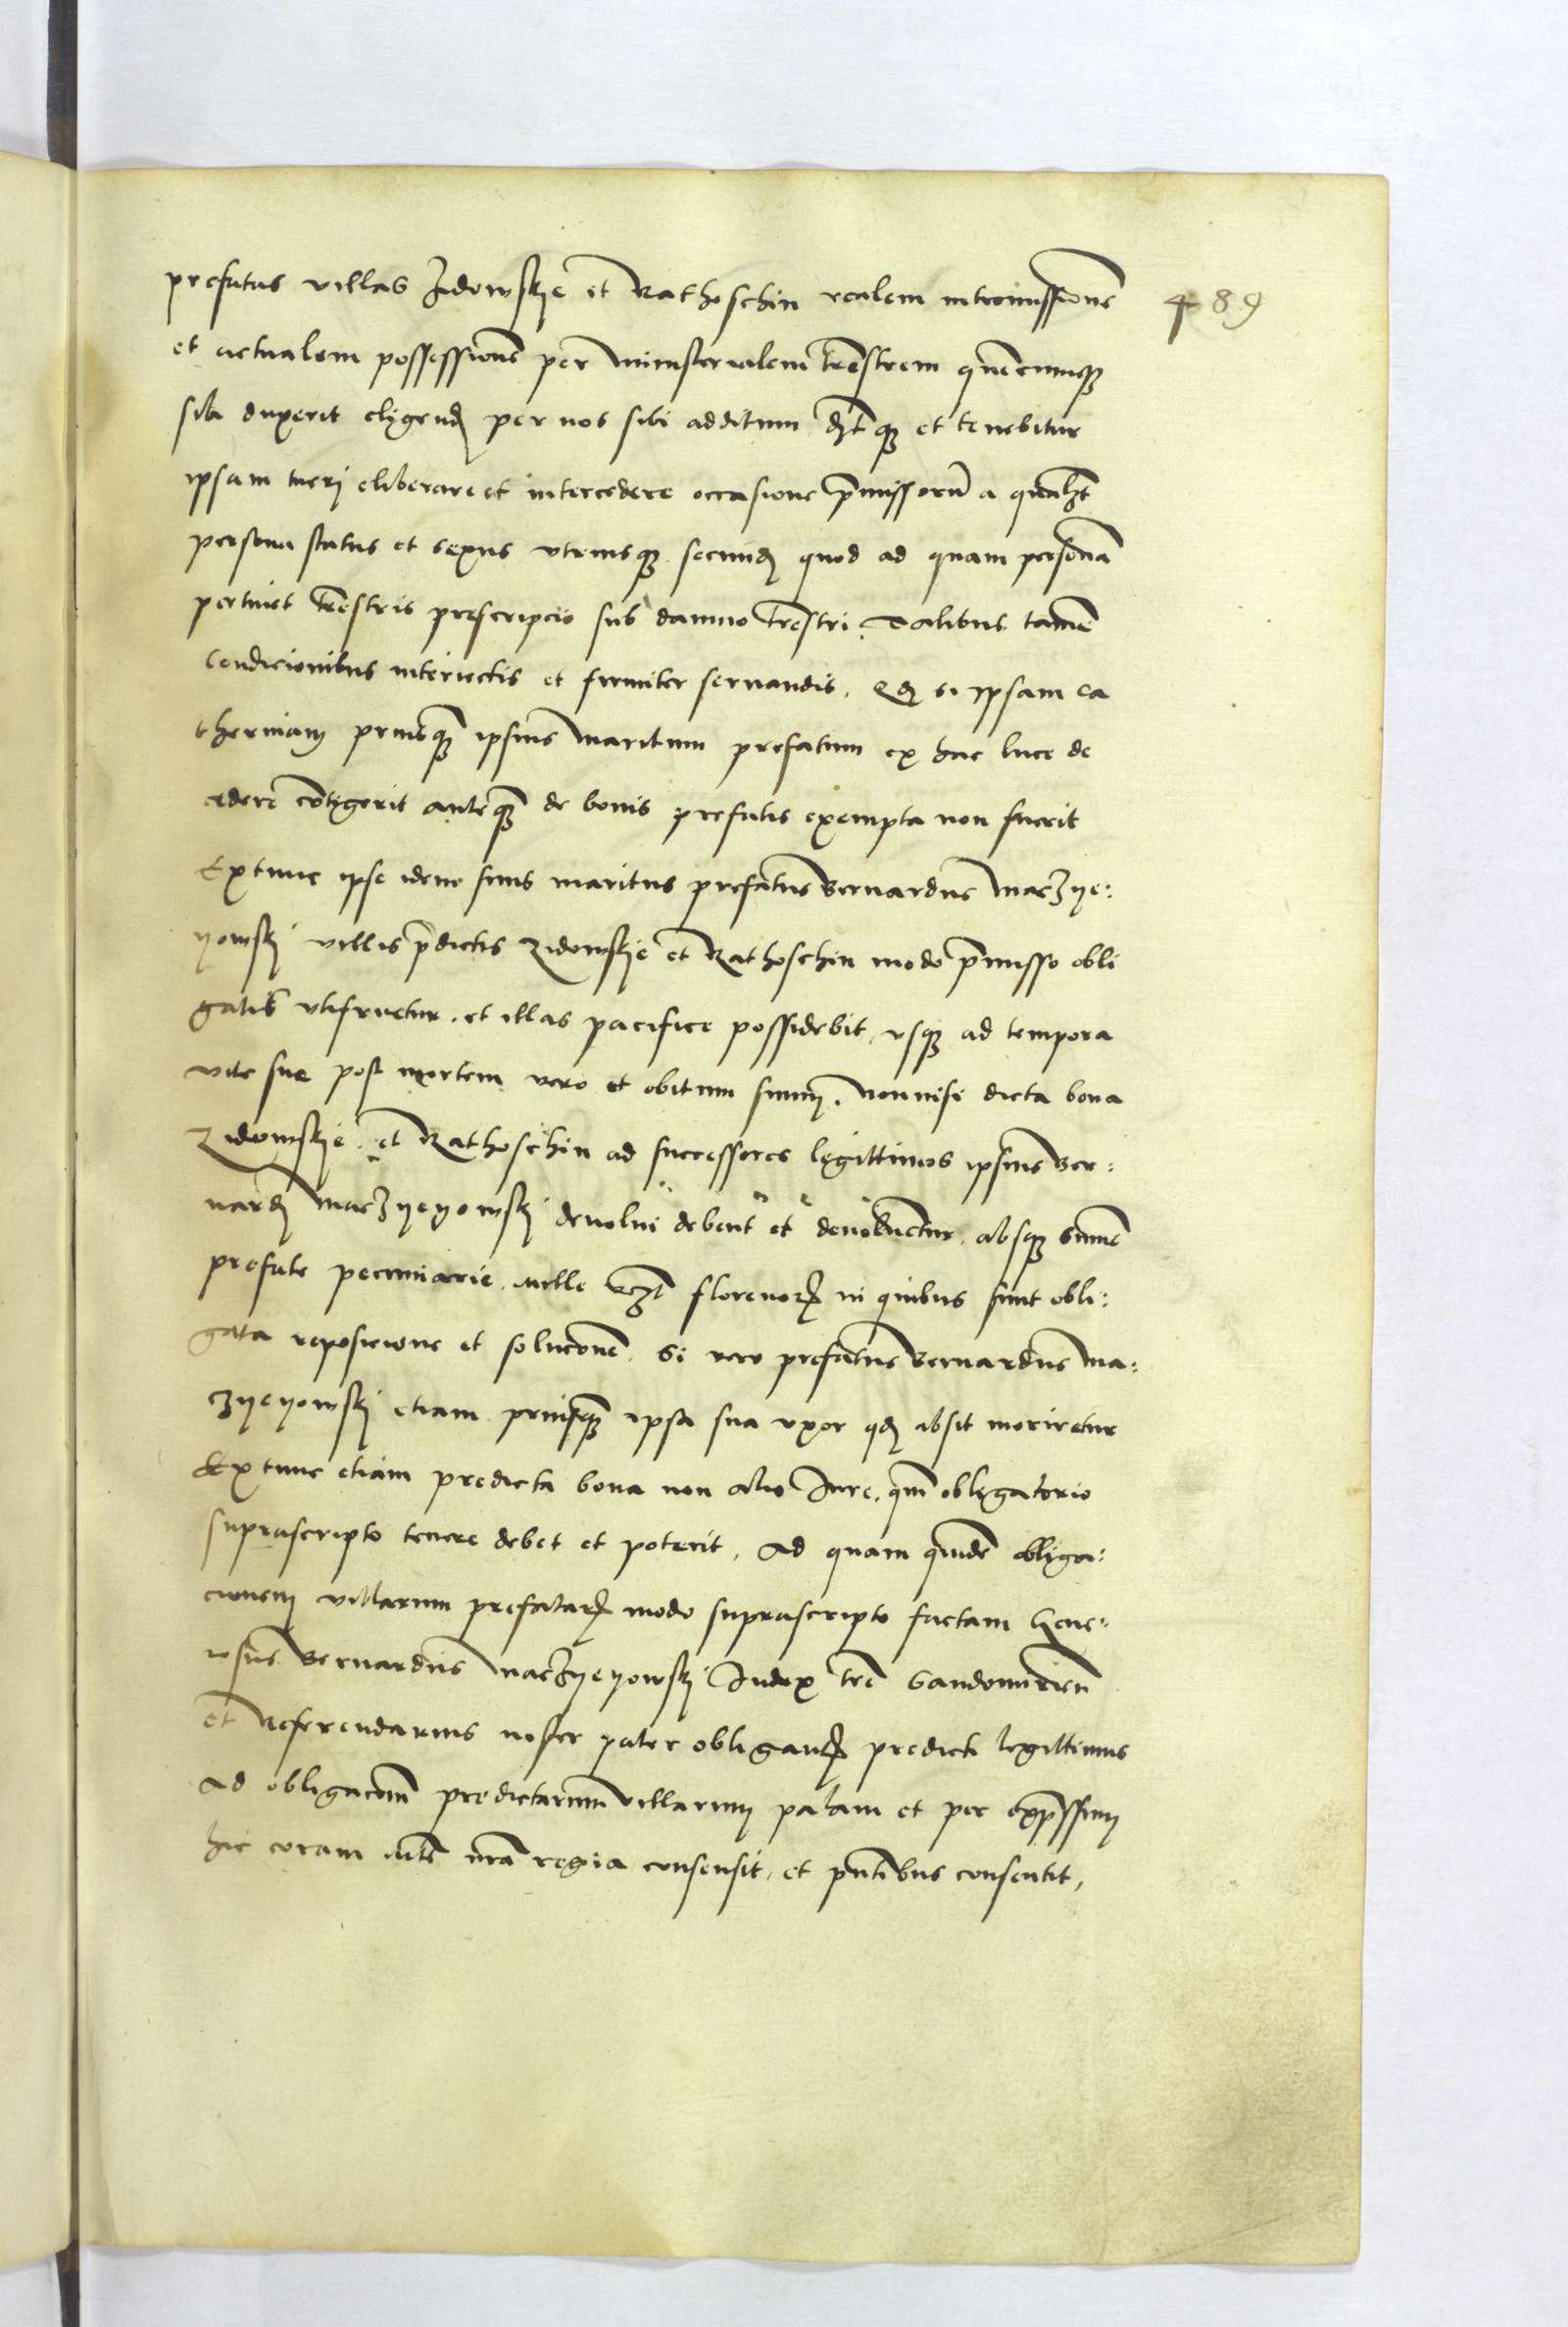 489
prefatas villas Zidowskye et Rathoschin realem intromissionē
et actualem possessionē per ministerialem trēstrem quēcumqꝫ
sibi duxerit eligendꝫ per nos sibi additum dꝫtqꝫ et tenebitur
ipsam tueri eliberare et intercedere occasione pͬmissorū a qualꝫt
persona status et sexus vtriusqꝫ secundꝫ quod ad quam personā
pertinet trēstris prescripcio sub damno trēstri. Talibus tamē
condicionibus interiectis et firmiter seruandis. Qdꝫ si ipsam Ca
therinam priusqꝫ ipsius maritum prefatum ex hac luce de
cedere cōtigerit anteqꝫ de bonis prefatis exempta non fuerit
Extunc ipse idem suus maritus prefatus Bernardus Maczye:
yowskj villis pͬdictis Zidowskye et Rathoschin modo pͬmisso obli
gatis vtifruetur. et illas pacifice possidebit, vsqꝫ ad tempora
vite sue post mortem vero et obitum suum, nonnisi dicta bona
Zidowskye et Rathoschin ad successores legittimos ipsius Ber:
nardj Maczyeyowskj deuolui debent et deuoluentur. absqꝫ summe
prefate pecuniarie. mille vꝫt florenorꝫ in quibus sunt obli:
gata reposicione et solucionē. Si vero prefatus Bernardus Ma:
czyeyowskj etiam priusqꝫ ipsa sua vxor qdꝫ absit moriretur
Extunc etiam predicta bona non alio Jure. qm̄ obligatorio
suprascripto tenere debet et poterit, Ad quam quidē obliga:
cionem villarum prefatarꝫ modo suprascripto factam Gene:
rosus Bernardus Maczyeyowskj Judex trē Sandomirien̄
et Referendarius noster pater obligantꝫ predicti legittimus
Ad obligacionē predictarum villarum palam et per expͬssum
hic coram Mte nr̄a regia consensit, et pn̄tibus consentit,